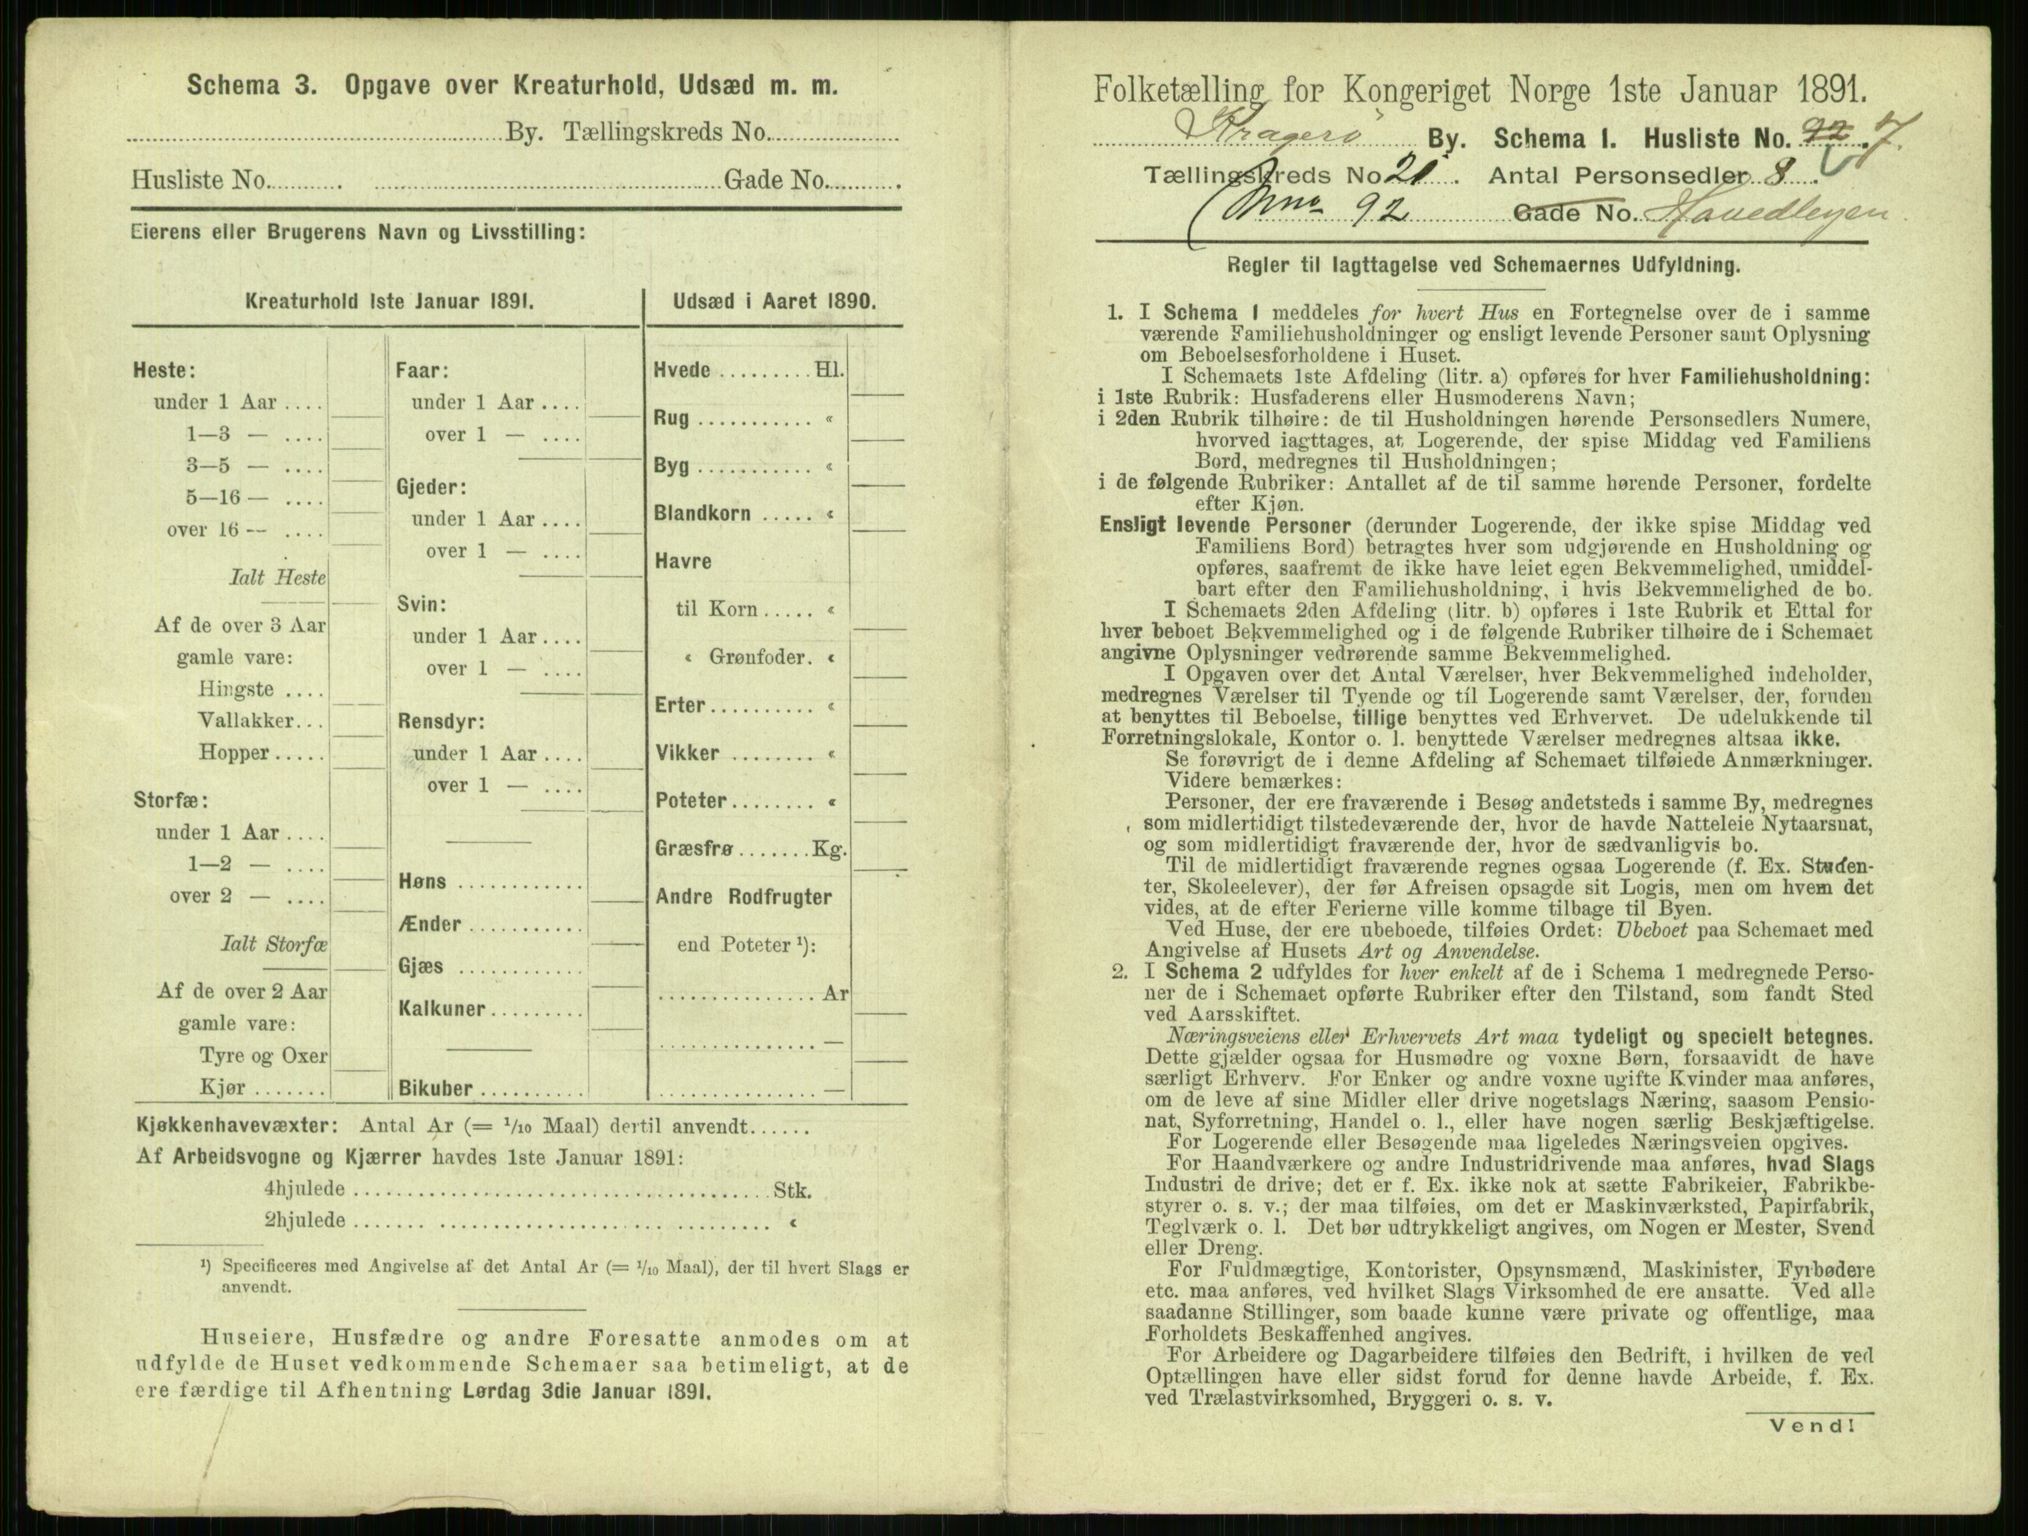 Schema 3. Opgave over Kreaturhold, Udsæd m. m.
By. Tællingskreds No.
Husliste No. Gade No.
Eierens eller Brugerens Navn og Livsstilling:
Kreaturhold 1ste Januar 1891.
Heste:
under 1 Aar ....
1—3 — ....
3—5 — ....
5—16 — ....
over 16 — ....
Ialt Heste
Af de over 3 Aar
gamle vare:
Hingste ....
Vallakker...
Hopper.....
Storfæ:
under 1 Aar ....
1—2 — ....
over 2 — ....
Ialt Storfæ
Af de over 2 Aar
gamle vare:
Tyre og Oxer
Kjør .......
Faar:
under 1 Aar ....
over 1 — ....
Gjeder:
under 1 Aar ....
over 1 — ....
Svin:
under 1 Aar ....
over 1 — ....
Rensdyr:
under 1 Aar ....
over 1 — ....
Høns ............
Ænder ...........
Gjæs ............
Kalkuner.........
Bikuber ..........
Udsæd i Aaret 1890.
Hvede .........Hl.
Rug ........... «
Byg ........... «
Blandkorn ..... «
Havre
til Korn ..... «
« Grønfoder. «
Erter.......... «
Vikker ........ «
Poteter........ «
Græsfrø.......Kg.
Andre Rodfrugter
end Poteter ¹):
............... Ar
............... —
............... —
Kjøkkenhavevæxter: Antal Ar (= 1/10 Maal) dertil anvendt......
Af Arbeidsvogne og Kjærrer havdes 1ste Januar 1891:
4hjulede ........................................Stk.
2hjulede ........................................ «
¹) Specificeres med Angivelse af det Antal Ar (= 1/10 Maal), der til hvert Slags er
anvendt.
Huseiere, Husfædre og andre Foresatte anmodes om at
udfylde de Huset vedkommende Schemaer saa betimeligt, at de
ere færdige til Afhentning Lørdag 3die Januar 1891.
Folketælling for Kongeriget Norge 1ste Januar 1891.
Kragerö By. Schema 1. Husliste No. 92. 7.
Tællingskreds No 21. Antal Personsedler 8.
92 Gade No.
Regler til Iagttagelse ved Schemaernes Udfyldning.
1. I Schema 1 meddeles for hvert Hus en Fortegnelse over de i samme
værende Familiehusholdninger og ensligt levende Personer samt Oplysning
om Beboelsesforholdene i Huset.
I Schemaets 1ste Afdeling (litr. a) opføres for hver Familiehusholdning:
i 1ste Rubrik: Husfaderens eller Husmoderens Navn;
i 2den Rubrik tilhøire: de til Husholdningen hørende Personsedlers Numere,
hvorved iagttages, at Logerende, der spise Middag ved Familiens
Bord, medregnes til Husholdningen;
i de følgende Rubriker: Antallet af de til samme hørende Personer, fordelte
efter Kjøn.
Ensligt levende Personer (derunder Logerende, der ikke spise Middag ved
Familiens Bord) betragtes hver som udgjørende en Husholdning og
opføres, saafremt de ikke have leiet egen Bekvemmelighed, umiddel-
bart efter den Familiehusholdning, i hvis Bekvemmelighed de bo.
I Schemaets 2den Afdeling (litr. b) opføres i 1ste Rubrik et Ettal for
hver beboet Bekvemmelighed og i de følgende Rubriker tilhøire de i Schemaet
angivne Oplysninger vedrørende samme Bekvemmelighed.
I Opgaven over det Antal Værelser, hver Bekvemmelighed indeholder,
medregnes Værelser til Tyende og til Logerende samt Værelser, der, foruden
at benyttes til Beboelse, tillige benyttes ved Erhvervet. De udelukkende til
Forretningslokale, Kontor o. l. benyttede Værelser medregnes altsaa ikke.
Se forøvrigt de i denne Afdeling af Schemaet tilføiede Anmærkninger.
Videre bemærkes:
Personer, der ere fraværende i Besøg andetsteds i samme By, medregnes
som midlertidigt tilstedeværende der, hvor de havde Natteleie Nytaarsnat,
og som midlertidigt fraværende der, hvor de sædvanligvis bo.
Til de midlertidigt fraværende regnes ogsaa Logerende (f. Ex. Studen-
ter, Skoleelever), der før Afreisen opsagde sit Logis, men om hvem det
vides, at de efter Ferierne ville komme tilbage til Byen.
Ved Huse, der ere ubeboede, tilføies Ordet: Ubeboet paa Schemaet med
Angivelse af Husets Art og Anvendelse.
2. I Schema 2 udfyldes for hver enkelt af de i Schema 1 medregnede Perso-
ner de i Schemaet opførte Rubriker efter den Tilstand, som fandt Sted
ved Aarsskiftet.
Næringsveiens eller Erhvervets Art maa tydeligt og specielt betegnes.
Dette gjælder ogsaa for Husmødre og voxne Børn, forsaavidt de have
særligt Erhverv. For Enker og andre voxne ugifte Kvinder maa anføres,
om de leve af sine Midler eller drive nogetslags Næring, saasom Pensio-
nat, Syforretning, Handel o. l., eller have nogen særlig Beskjæftigelse.
For Logerende eller Besøgende maa ligeledes Næringsveien opgives.
For Haandværkere og andre Industridrivende maa anføres, hvad Slags
Industri de drive; det er f. Ex. ikke nok at sætte Fabrikeier, Fabrikbe-
styrer o. s. v.; der maa tilføies, om det er Maskinværksted, Papirfabrik,
Teglværk o. l. Det bør udtrykkeligt angives, om Nogen er Mester, Svend
eller Dreng.
For Fuldmægtige, Kontorister, Opsynsmænd, Maskinister, Fyrbødere
etc. maa anføres, ved hvilket Slags Virksomhed de ere ansatte. Ved alle
saadanne Stillinger, som baade kunne være private og offentlige, maa
Forholdets Beskaffenhed angives.
For Arbeidere og Dagarbeidere tilføies den Bedrift, i hvilken de ved
Optællingen have eller sidst forud for denne havde Arbeide, f. Ex.
ved Trælastvirksomhed, Bryggeri o. s. v.
Vend!